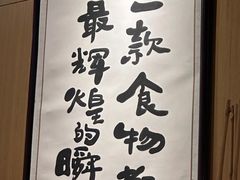 一款食物
最輝煌的瞬